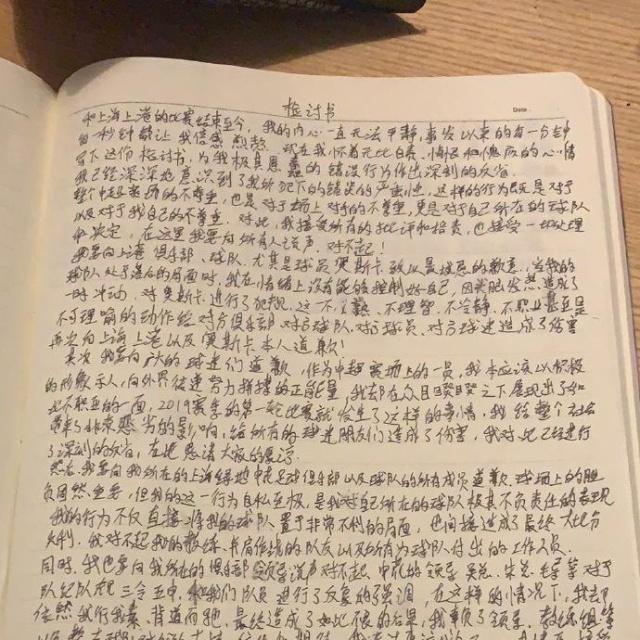 检讨书
Date.
和上海上港的比赛结束至今，我的内心一直无法平静，事发以来的每一分钟
每一秒钟都让我倍感煎熬。现在我怀着无比自责、悔恨和愧疚的心情
写下这份检讨书，为我极其愚蠢的错误行为作出深刻的反省。
我已经深深地意识到了我所犯下的错误的严重性，这样的行为既是对于
整个中超赛场的不尊重，也是对于场上对手的不尊重，更是对于自己所在的球队
以及对于我自己的不尊重。对此，我接受所有的批评和指责，也接受一切处理
和决定，在这里我要向所有人说声，对不起！
我要向上港俱乐部、球队、尤其是球员奥斯卡致以最诚恳的歉意，当我的
球队处于落后的局面时，我在情绪上没有能够控制好自己，因
一时冲动，对奥斯卡进行了犯规，这一不、不理智、不冷静、不职业甚至是
不可理喻的动作给对方俱乐部、对方球队、对方球员、对方球迷造成了伤害
再次向上海上港以及奥斯卡本人道歉！
其次，我要向广大的球迷们道歉，作为中超赛场上的一员，我本应该以积极
的形象示人，向外界传递努力拼搏的正能量，我却在众目睽睽之下展现出了如
此不职业的一面，2019赛季的第一轮比赛就发生了这样的事情，我给整个社会
带来了非常恶劣的影响，给所有的球迷朋友们造成了伤害，我对此已经进行
了深刻的反省，在此恳请大家的原谅。
然后，我要向我所在的上海绿地申花足球俱乐部以及球队的所有成员道歉，球场上的胜
负固然重要，但我的这一行为自私至极，是我对自己所在的球队极其不负责任的表现
我的行为不仅直接将我的球队置于非常不利的局面，也间接造成了最终大比分
失利。我对不起我的教练、并肩作战的队友以及所有为球队付出的工作人员。
同时，我也要向我所在的俱乐部领导说声对不起，申花的领导吴总、朱总、毛等对于
队纪队规三令五申，和我们队员进行了反复的强调，在这样的情况下，我却
依然我行我素、背道而驰，最终造成了如此恶劣的后果，我辜负了领导、教练组